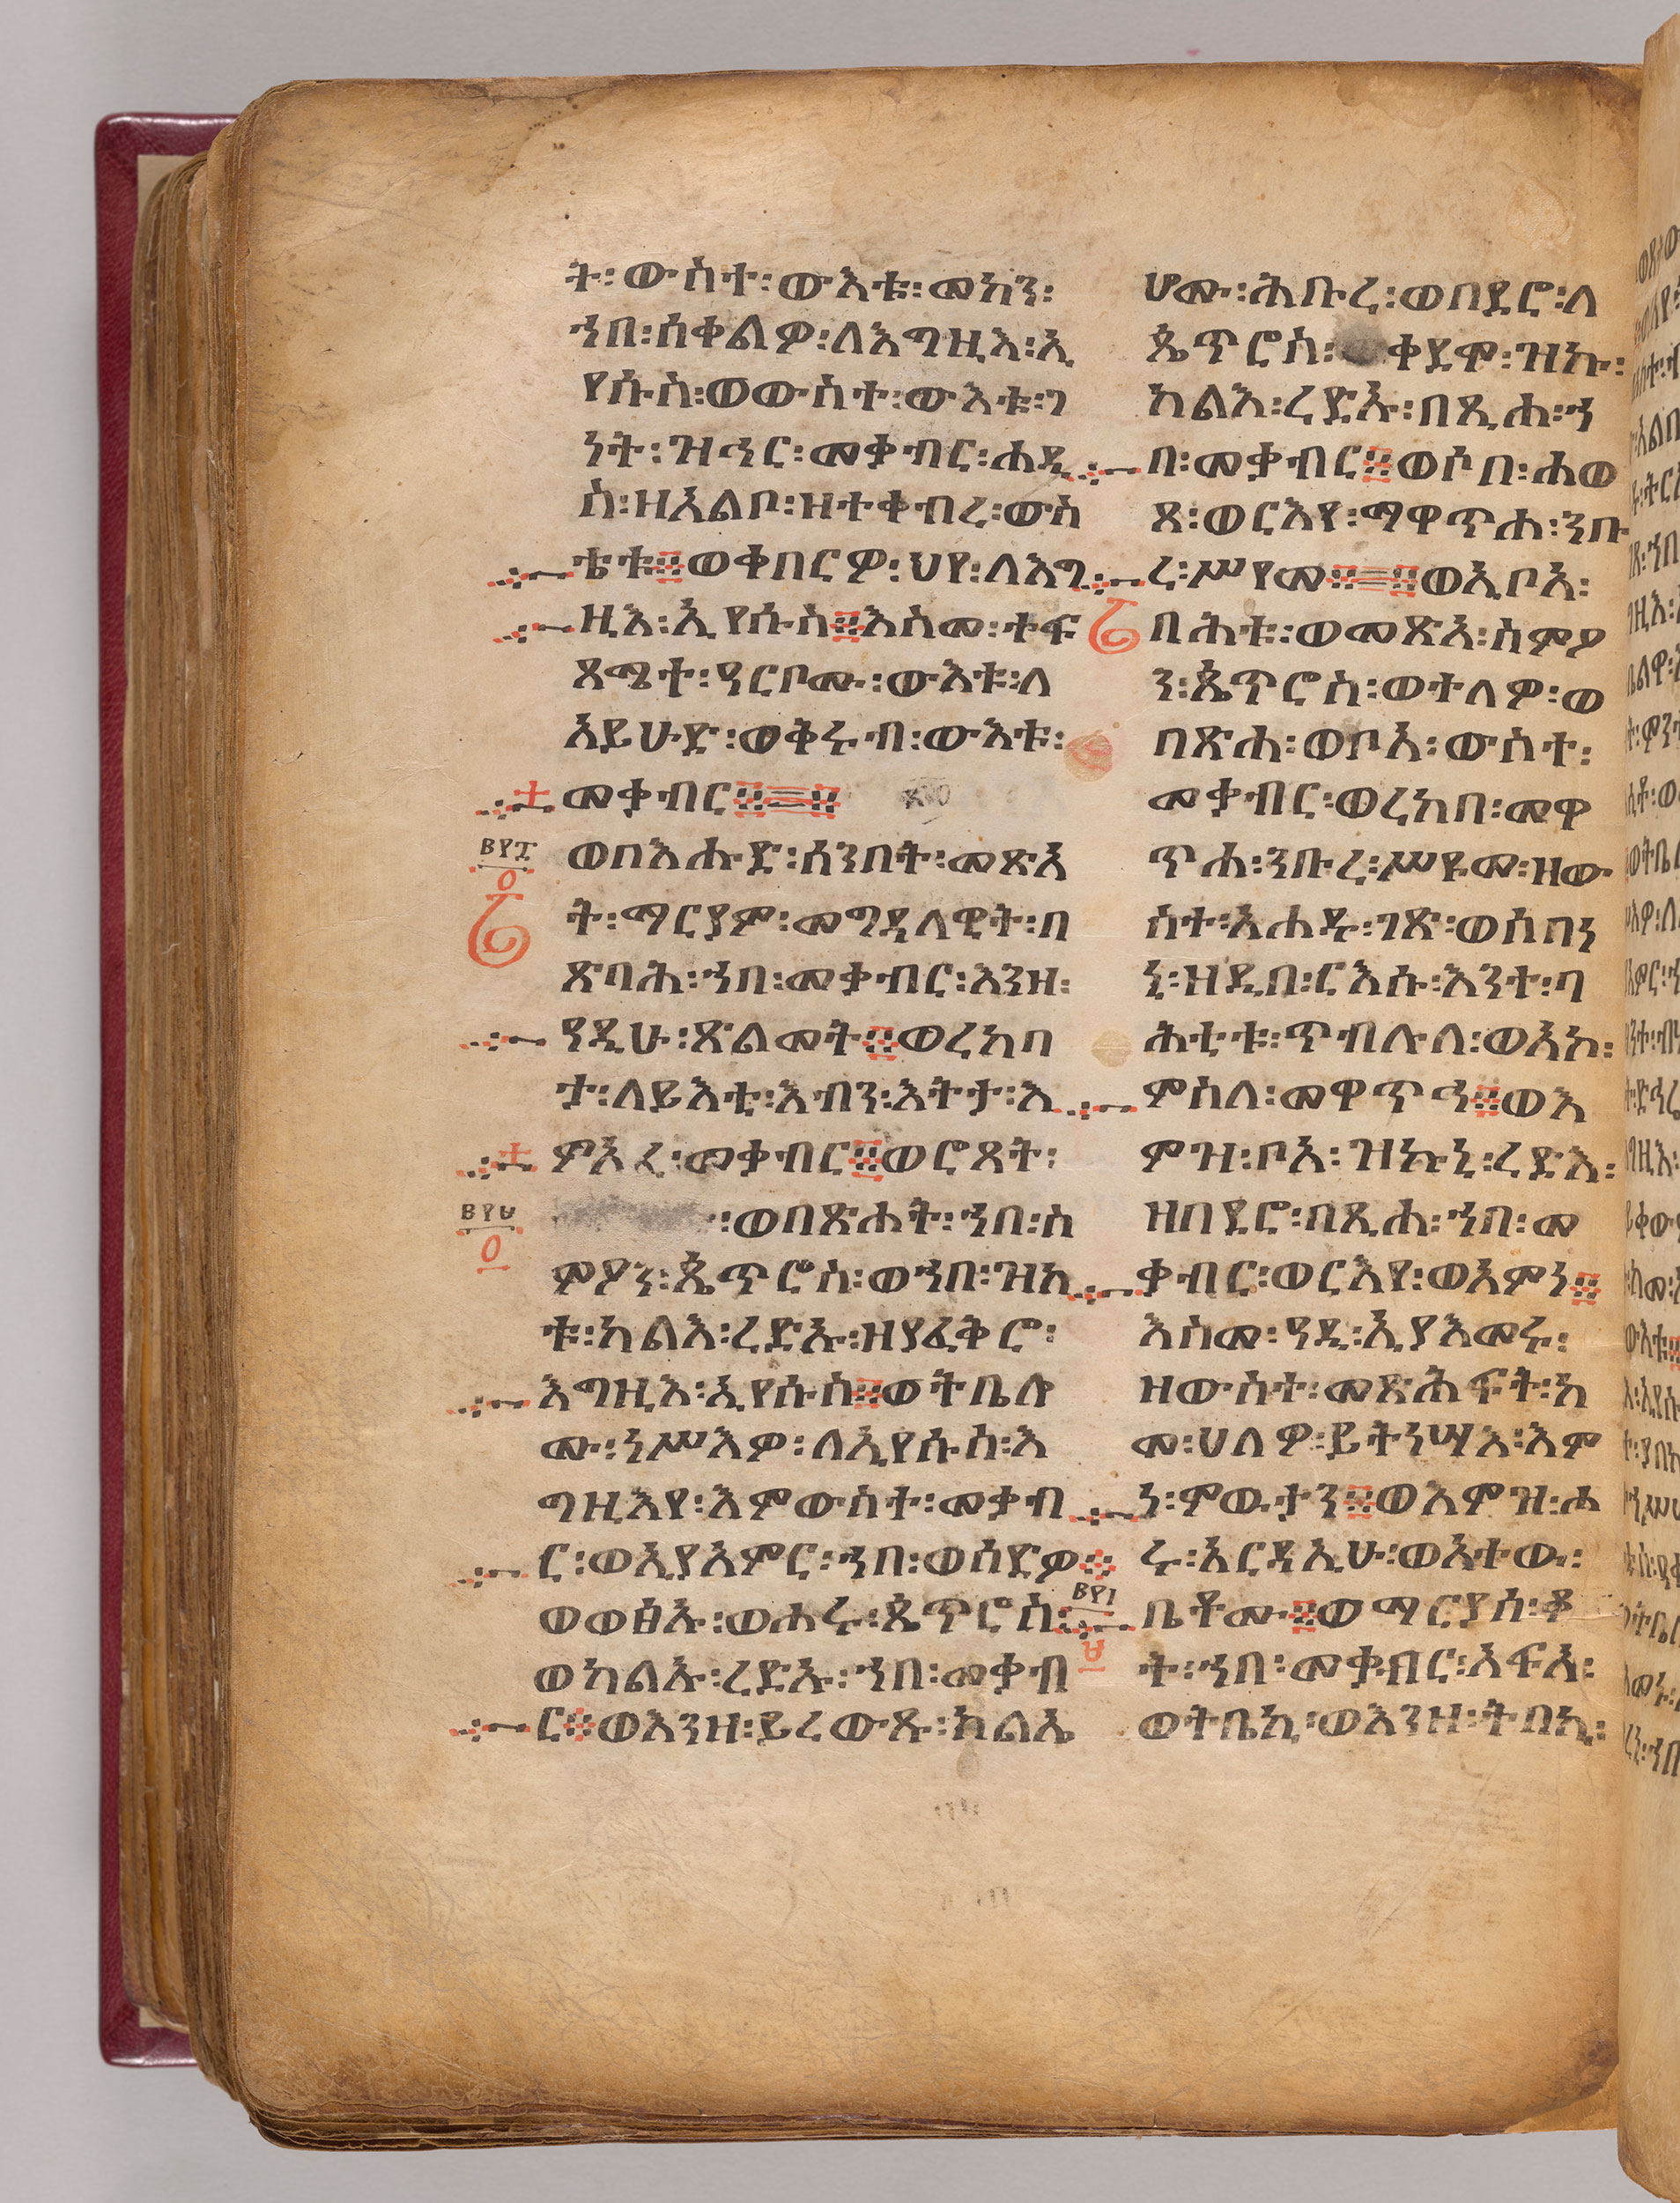 ት፡ውስተ፡ውእቱ፡መካን፡
ኀበ፡ሰቀልዎ፡ለእግዚእ፡ኢ
የሱስ፡ወውስተ፡ውእቱ፡ገ
ነት፡ዝኅር፡መቃብር፡ሐዲ
ስ፡ዘአልቦ፡ዘተቀብረ፡ውስ
ቴቱ፨ወቀበርዎ፡ህየ፡ለእግ
ዚእ፡ኢየሱስ፨እስመ፡ተፍ
ጻሜተ፡ዓርቦሙ፡ውእቱ፡ለ
አይሁድ፡ወቅሩብ፡ውእቱ፡
መቃብር፨፨
ወበእሑድ፡ሰንበት፡መጽአ
ት፡ማርያም፡መግዲላዊት፡በ
ጽባሕ፡ኀበ፡መቃብር፡እንዘ፡
ዓዲሁ፡ጽልመት፨ወረከበ
ታ፡ለይእቲ፡እብን፡እትታ፡እ
ምአፈ፡መቃብር፨ወሮጸት፡
፡ወበጽሐት፡ኀበ፡ስ
ምዖን፡ጴጥሮስ፡ወኀበ፡ዝክ
ቱ፡ካልእ፡ረድኡ፡ዘያፈቅሮ፡
እግዚእ፡ኢየሱስ፨ወትቤሎ
ሙ፡ነሥእዎ፡ለኢየሱስ፡እ
ግዚእየ፡እምውስተ፡መቃብ
ር፡ወኢያአምር፡ኀበ፡ወሰድዎ፨
ወወፅኡ፡ወሐሩ፡ጴጥሮስ፡
ወካልኡ፡ረድኡ፡ኀበ፡መቃብ
ር፨ወእንዘ፡ይረውጹ፡ክልኤ
ሆሙ፡ሕቡረ፡ወበደሮ፡ለ
ጴጥሮስ፡ቀዲሞ፡ዝኩ፡
ካልእ፡ረድኡ፡በጺሐ፡ኀ
በ፡መቃብር፨ወሶበ፡ሐወ
ጸ፡ወርእየ፡ማዋጥሐ፡ንቡ
ረ፡ሥየመ፨፨ወኢቦአ፡
በሕቱ፡ወመጽአ፡ስምዖ
ን፡ጴጥሮስ፡ወተለዎ፡ወ
በጽሐ፡ወቦአ፡ውስተ፡
መቃብር፡ወረከበ፡መዋ
ጥሐ፡ንቡረ፡ሥዩመ፡ዘው
ስተ፡አሐዱ፡ገጽ፡ወሰበነ
ኒ፡ዘዲበ፡ርእሱ፡እንተ፡ባ
ሕቲቱ፡ጥብሉለ፡ወአኮ፡
ምስለ፡መዋጥኅ፨ወእ
ምዝ፡ቦአ፡ዝኩኒ፡ረድእ፡
ዘበደሮ፡በጺሐ፡ኀበ፡መ
ቃብር፡ወርእየ፡ወአምነ፨
እስመ፡ዓዲ፡ኢያእመሩ፡
ዘውስተ፡መጽሕፍት፡ከ
መ፡ሀለዎ፡ይትነሣእ፡እም
ነ፡ምዉታን፨ወእምዝ፡ሖ
ሩ፡አርዳኢሁ፡ወአተዉ፡
ቤቶሙ፨ወማርያሰ፡ቆ
ት፡ኀበ፡መቃብር፡አፍአ፡
ወትቤኪ፡ወእንዘ፡ትበኪ፡